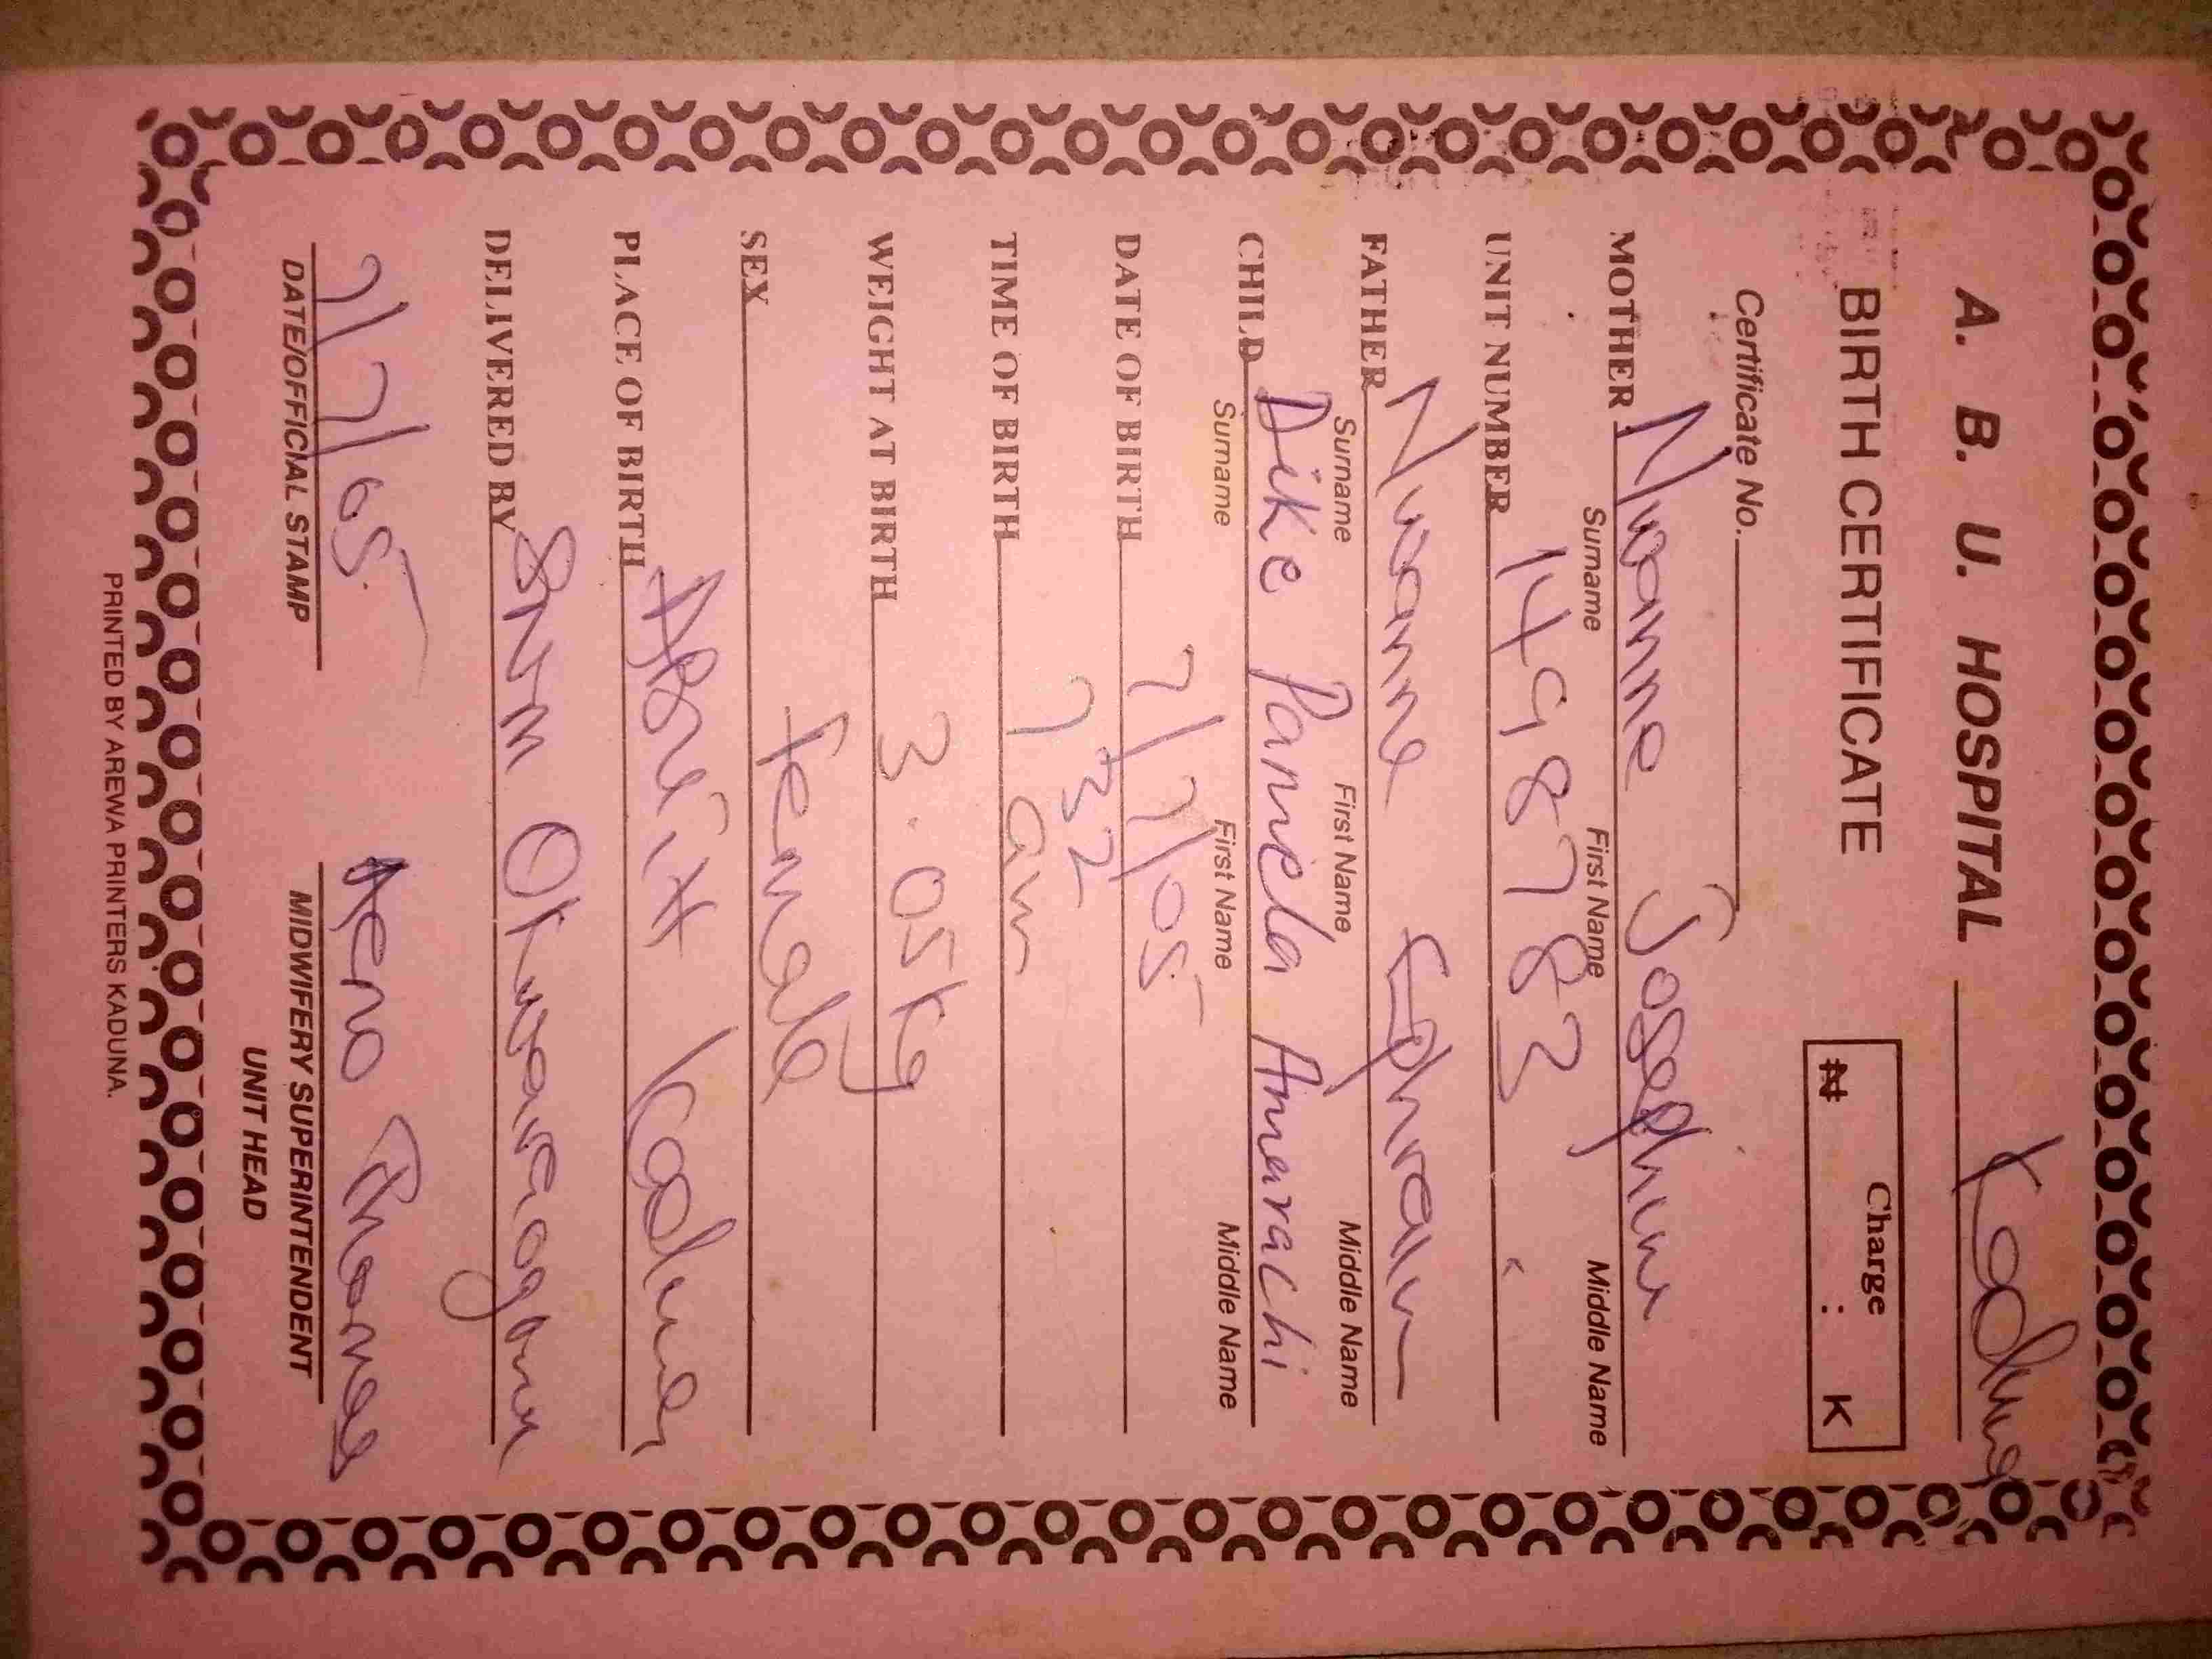 A. B. U. HOSPITAL Kaduna
BIRTH CERTIFICATE
Charge
₦ : K
Certificate No.
MOTHER Nwanne Josephine
Surname First Name Middle Name
UNIT NUMBER 1498783
FATHER Nwanne Ephraim
Surname First Name Middle Name
CHILD Dike Pamela Amarachi
Surname First Name Middle Name
DATE OF BIRTH 7/7/05
TIME OF BIRTH 7 32 am
WEIGHT AT BIRTH 3.05kg
SEX female
PLACE OF BIRTH Kaduna
DELIVERED BY
7/7/05 Thomas
DATE/OFFICIAL STAMP MIDWIFERY SUPERINTENDENT
UNIT HEAD
PRINTED BY AREWA PRINTERS KADUNA.